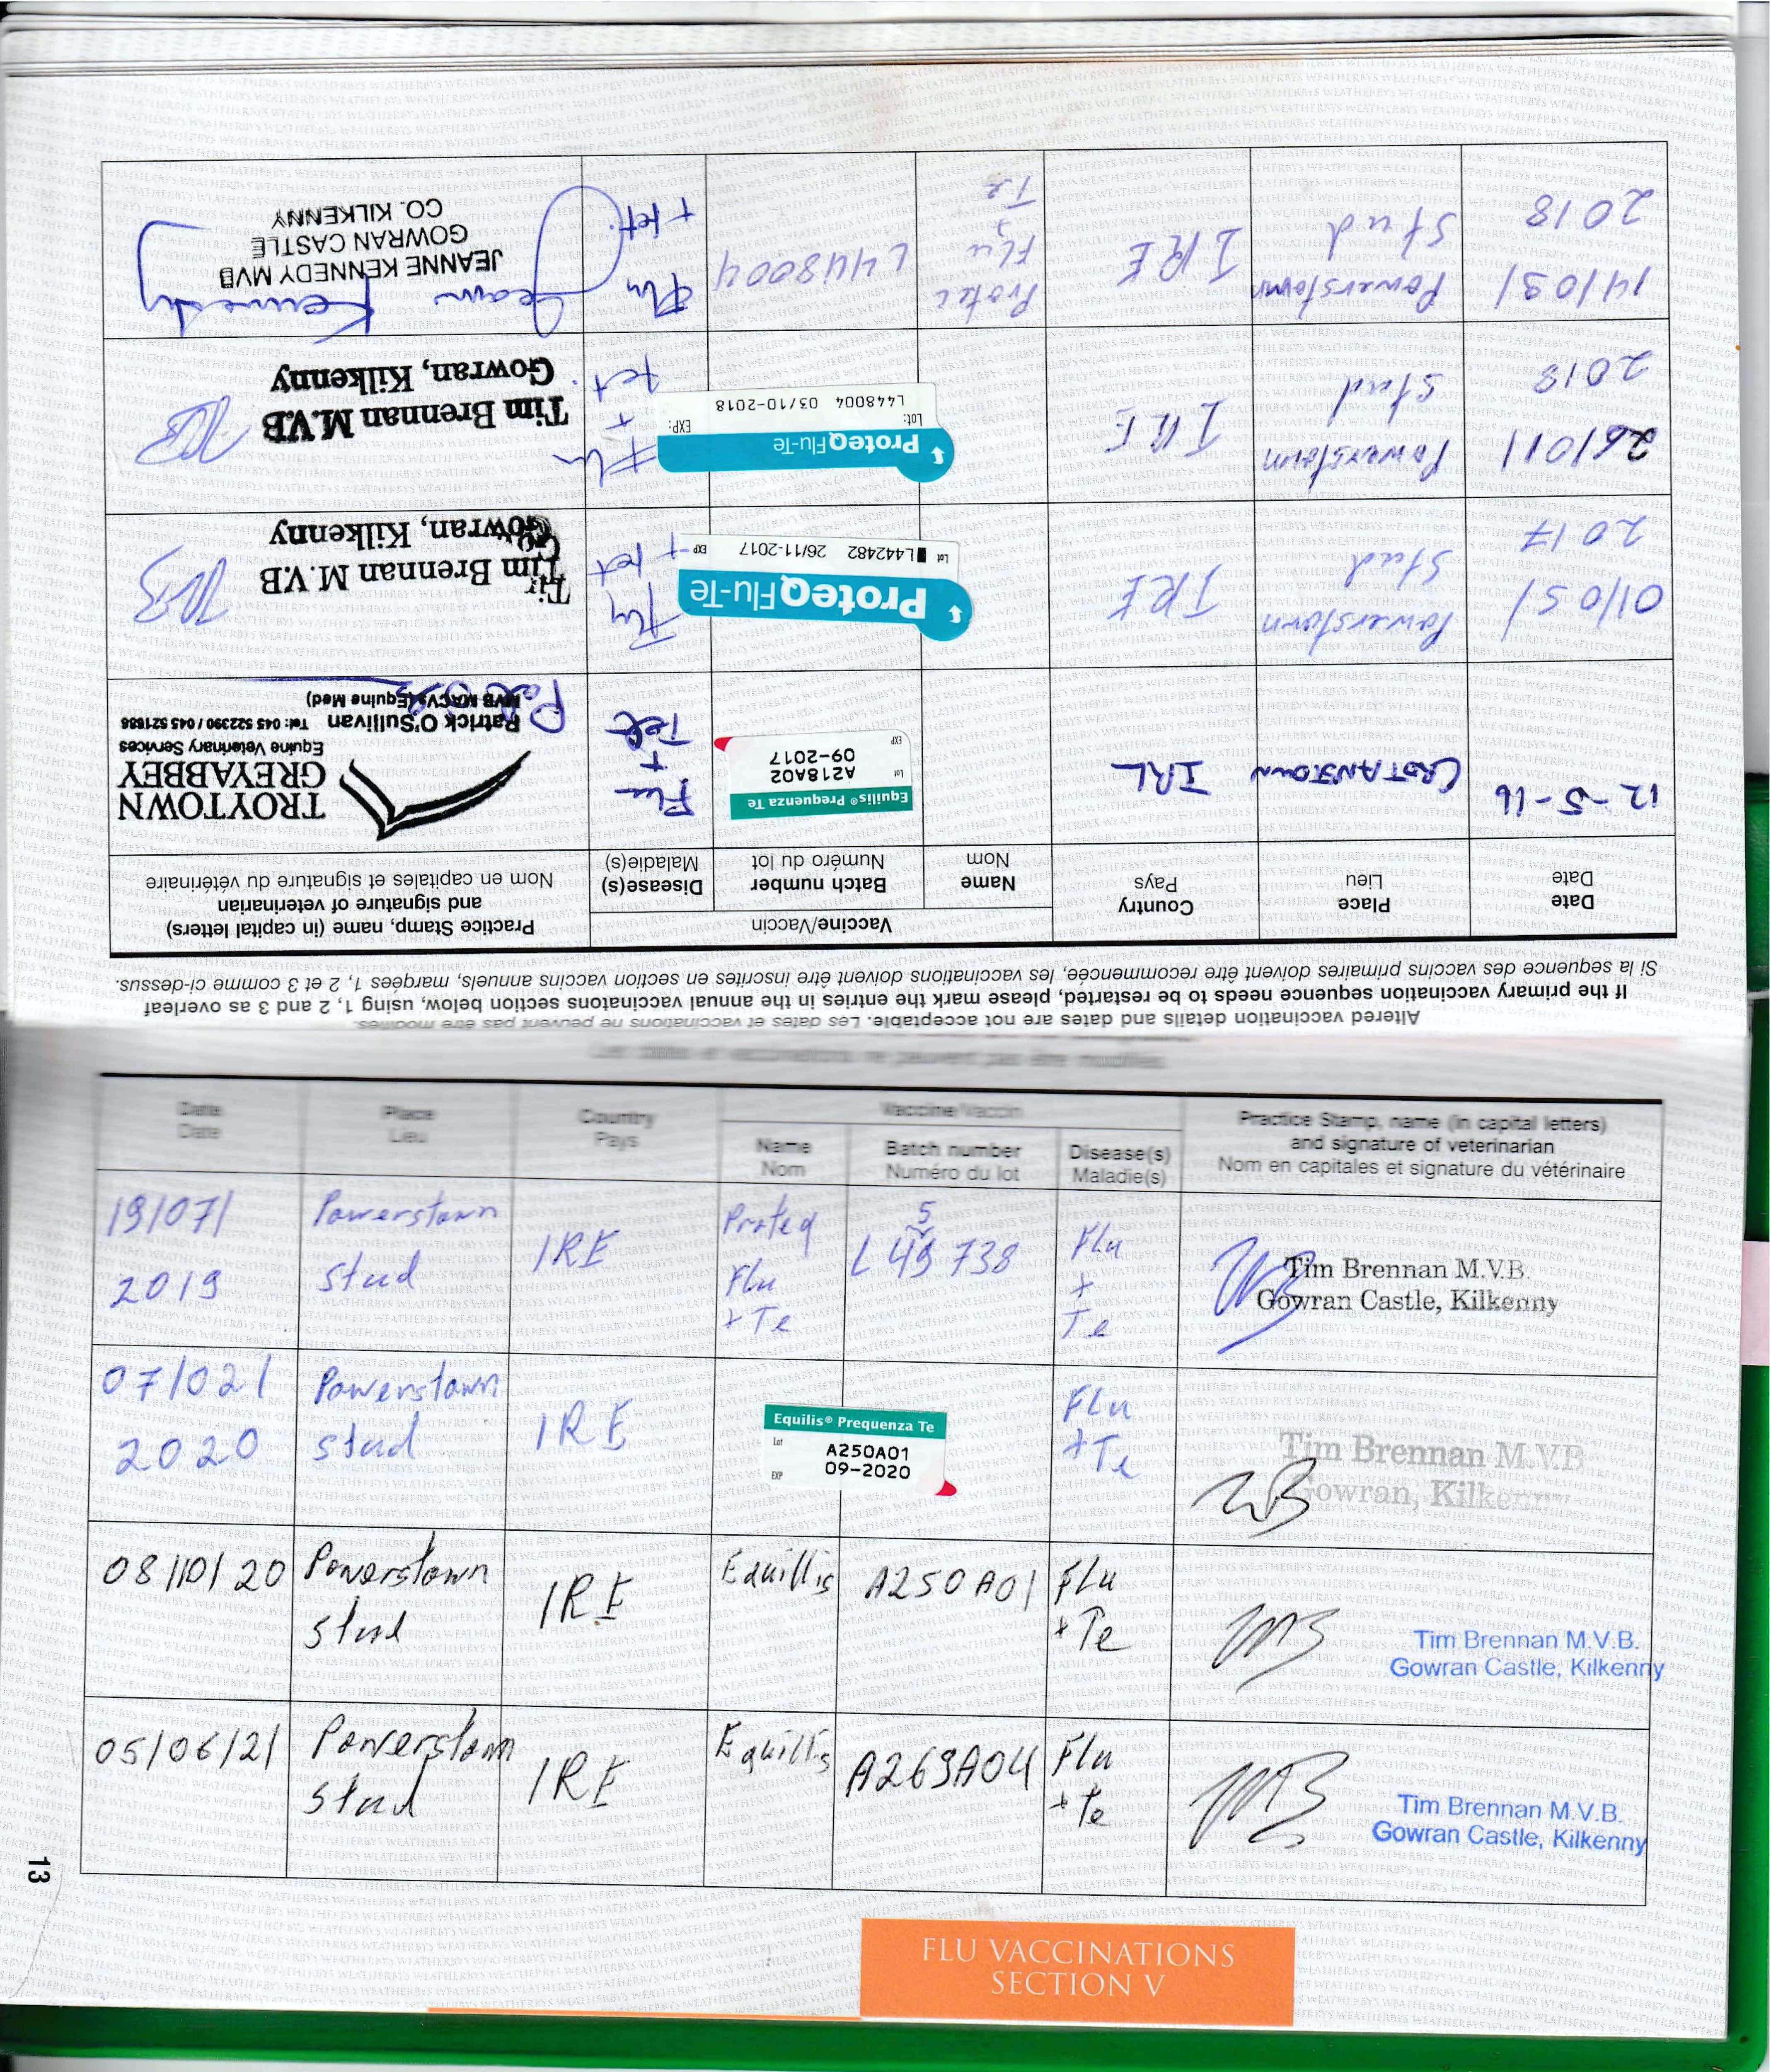 Altered vaccination details and dates are not acceptable. Les dates et vaccinations ne peuvent pas être modifiés.
If the primary vaccination sequence needs to be restarted, please mark the entries in the annual vaccinatons section below, using 1, 2 and 3 as overleaf
Si la séquence des vaccins primaires doivent être recommencée, les vaccinations doivent être inscrites en section vaccins annuels, marqées 1, 2 et 3 comme ci-dessus.
Date
Date
Place
Lieu
Country
Pays
Vaccine/Vaccin
Name
Nom
Batch number
Numéro du lot
Disease(s)
Maladie(s)
Practice Stamp, name (in capital letters)
and signature of veterinarian
Nom en capitales et signature du vétérinaire
12-5-16
IRL
Equilis® Prequenza Te
Lot A218A02
EXP 09-2017
Flu
+
Tet
TROYTOWN
GREYABBEY
Equine Veterinary Services
Patrick O'Sullivan Tel: 045 522390 / 045 521686
MVB MACVSc(Equine Med)
01/05/
2017
Powerstown
Stud
IRE
ProteqFlu-Te
Lot L442482 26/11-2017 EXP
Flu
+ tet
Tim Brennan M.V.B
Gowran, Kilkenny
26/01/
2018
Powerstown
Stud
IRE
ProteqFlu-Te
Lot: EXP:
L448004 03/10-2018
Flu
+
tet.
Tim Brennan M.V.B
Gowran, Kilkenny
14/03/
2018
Powerstown
Stud
IRE
Protec
Flu
Te
L448004
Flu
+ tet.
Jeanne Kennedy
JEANNE KENNEDY MVB
GOWRAN CASTLE
CO. KILKENNY
Les dates et vaccinations ne peuvent pas être modifiés.
Date
Date
Place
Lieu
Country
Pays
Vaccine/Vaccin
Name
Nom
Batch number
Numéro du lot
Disease(s)
Maladie(s)
Practice Stamp, name (in capital letters)
and signature of veterinarian
Nom en capitales et signature du vétérinaire
19/07/
2019
Powerstown
stud
IRE
Proteq
Flu
+ Te
Flu
+
Te
Tim Brennan M.V.B.
Gowran Castle, Kilkenny
07/02/
2020
Powerstown
stud
IRE
Equilis® Prequenza Te
Lot A250A01
EXP 09-2020
Flu
+ Te
Tim Brennan M.V.B
Gowran, Kilkenny
08/10/20
Powerstown
stud
IRE
Equillis
A250A01
Flu
+ Te
Tim Brennan M.V.B.
Gowran Castle, Kilkenny
05/06/21
Powerstown
stud
IRE
Equillis
A269A04
Flu
+ Te
Tim Brennan M.V.B.
Gowran Castle, Kilkenny
13
FLU VACCINATIONS
SECTION V